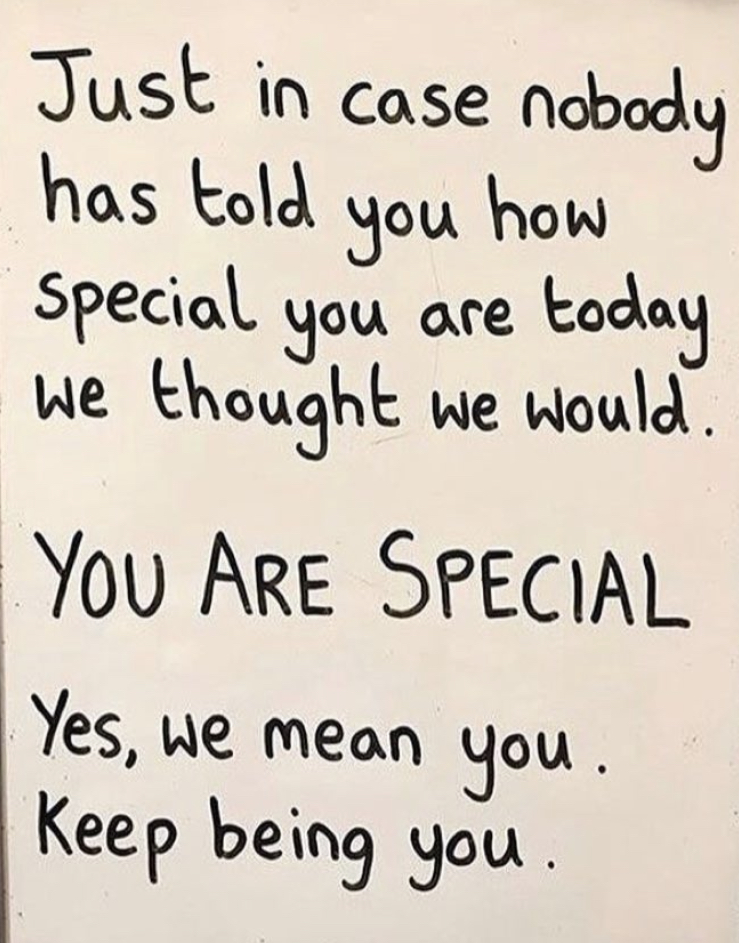 Just in case nobody
has told you how
special you are today
we thought we would.
YOU ARE SPECIAL
Yes, we mean you.
Keep being you.